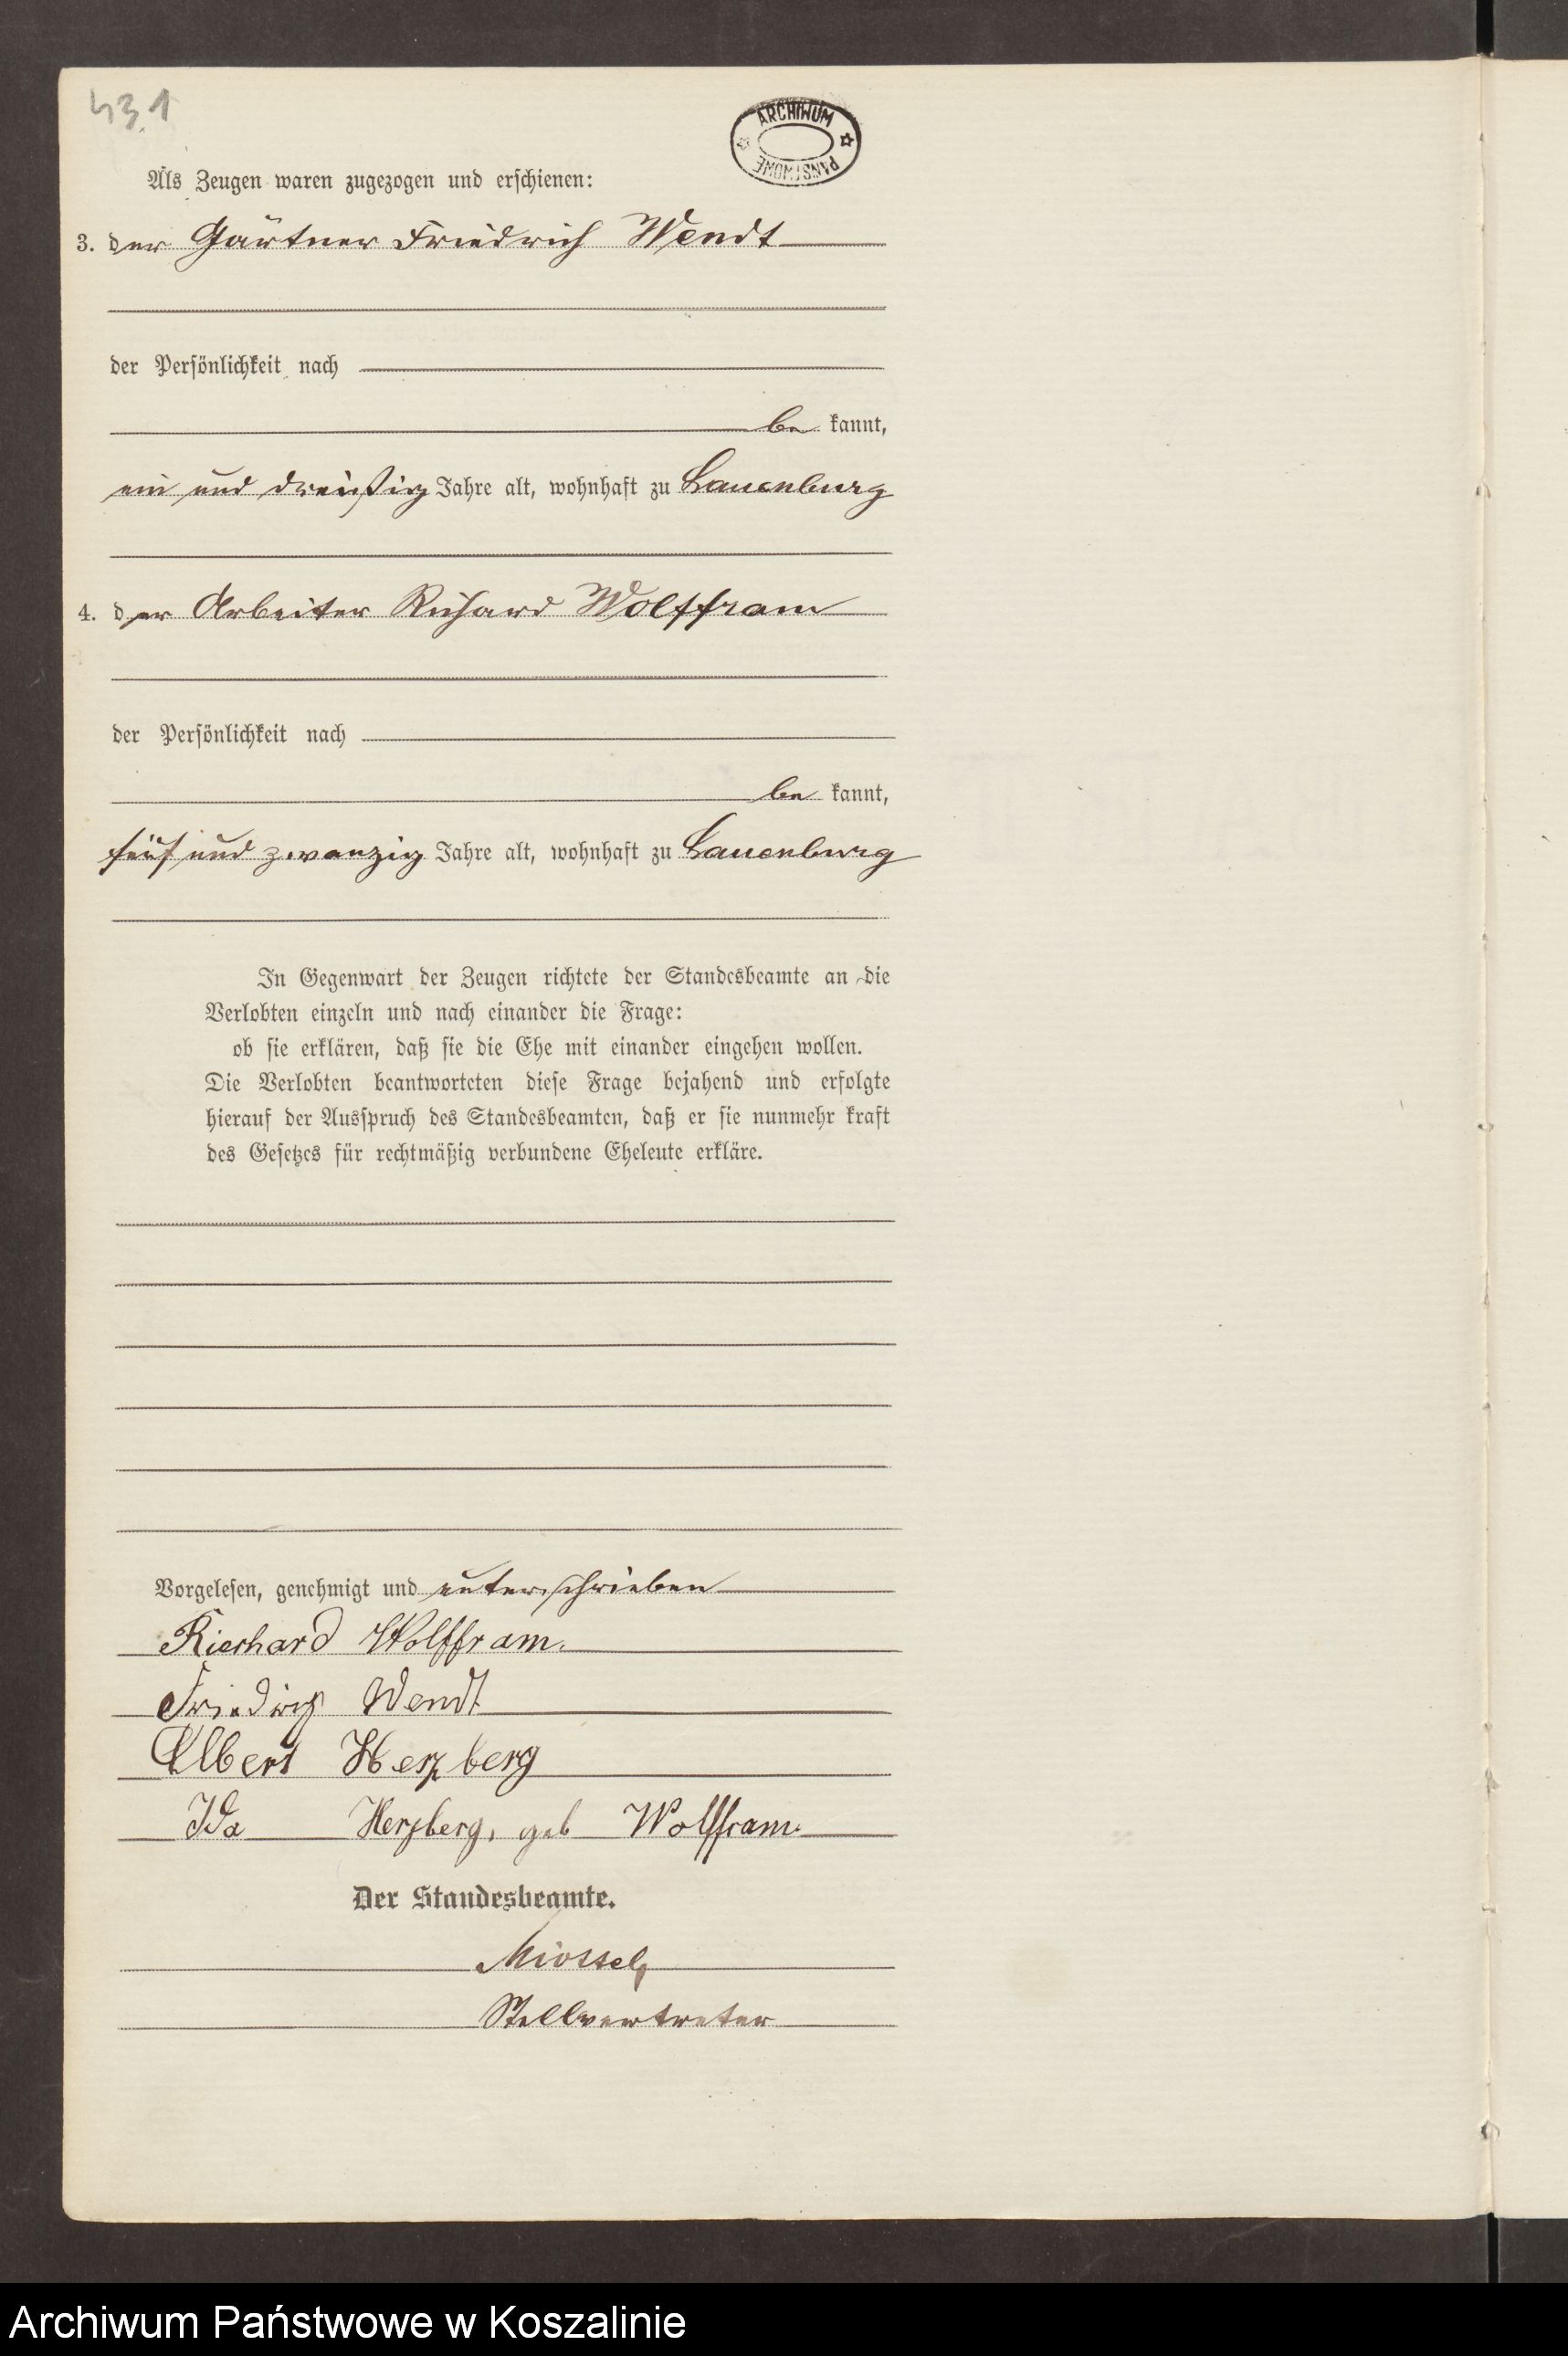 431
ARCHIWUM
PAŃSTWOWE
Als Zeugen waren zugezogen und erschienen:
3. der Gärtner Friedrich Wendt
der Persönlichkeit nach
be kannt,
ein und dreißig Jahre alt, wohnhaft zu Lauenburg
4. der Arbeiter Richard Wolffram
der Persönlichkeit nach
be kannt,
fünf und zwanzig Jahre alt, wohnhaft zu Lauenburg
In Gegenwart der Zeugen richtete der Standesbeamte an die
Verlobten einzeln und nach einander die Frage:
ob sie erklären, daß sie die Ehe mit einander eingehen wollen.
Die Verlobten beantworteten diese Frage bejahend und erfolgte
hierauf der Ausspruch des Standesbeamten, daß er sie nunmehr kraft
des Gesetzes für rechtmäßig verbundene Eheleute erkläre.
Vorgelesen, genehmigt und unterschrieben
Rierhard Wolffram.
Friedrich Wendt
Albert Herzberg
Ida Herzberg, geb Wolffram.
Der Standesbeamte.
Stellvertreter
Archiwum Państwowe w Koszalinie